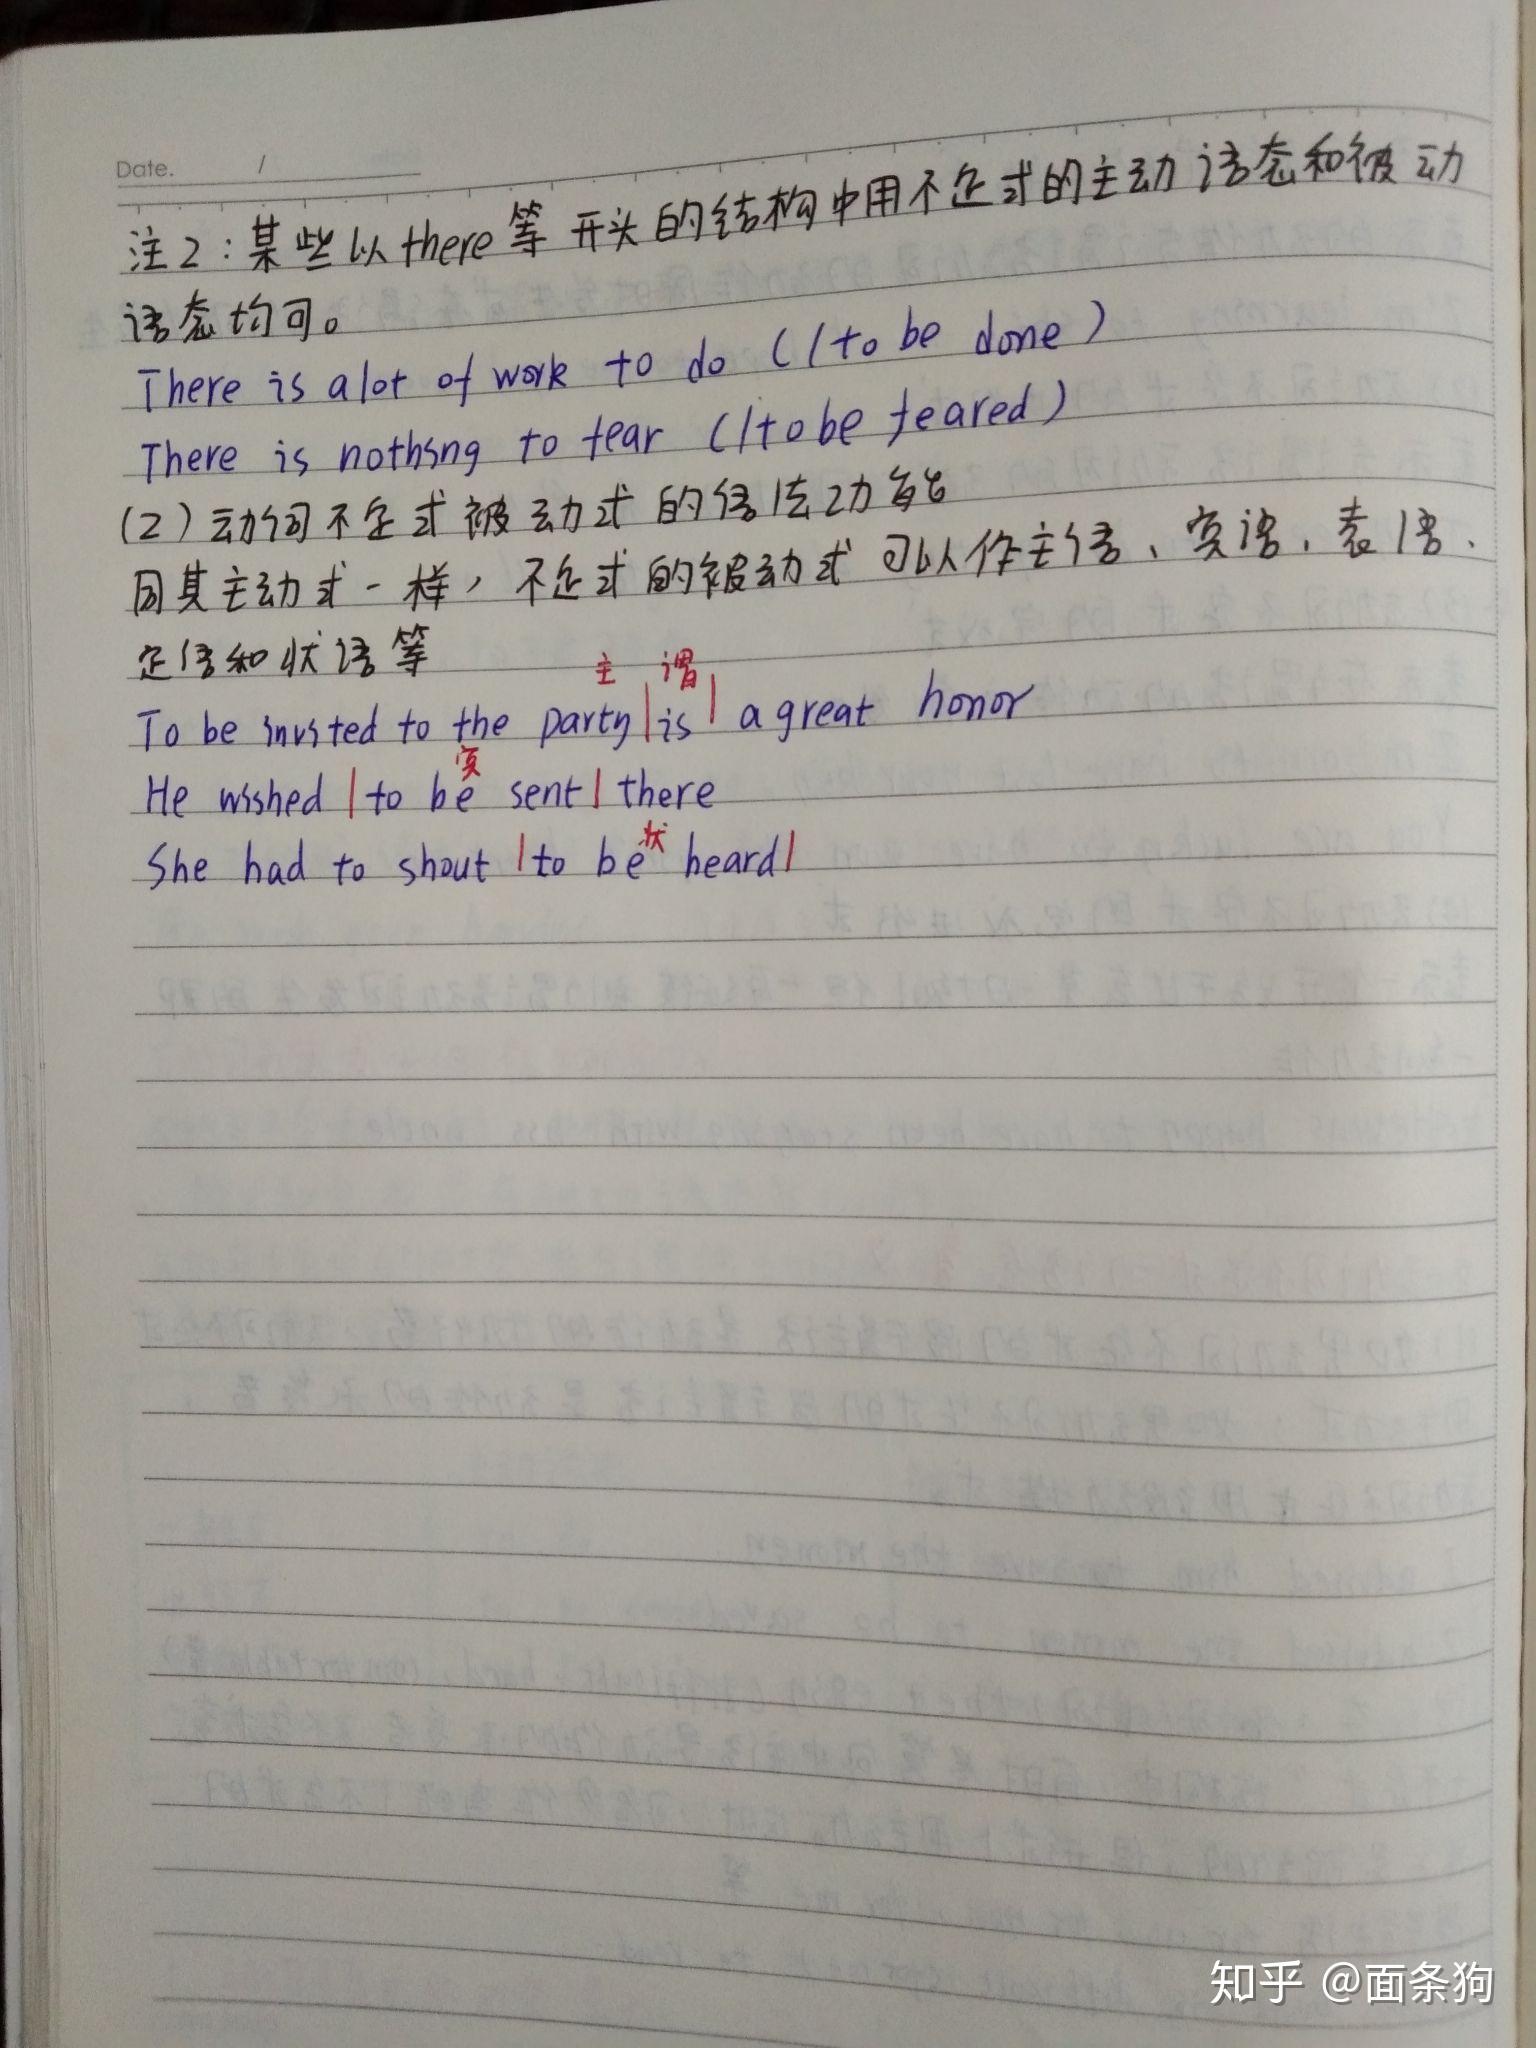 Date. /
注2：某些以there等开头的结构中用不定式的主动语态和被动
语态均可。
There is a lot of work to do (/to be done)
There is nothing to fear (/to be feared)
(2)动词不定式被动式的语法功能
同其主动式一样，不定式的被动式可以作主语、宾语、表语、
定语和状语等
主 谓
To be invited to the party|is| a great honor
宾
He wished |to be sent| there
状
She had to shout |to be heard|
知乎 @面条狗